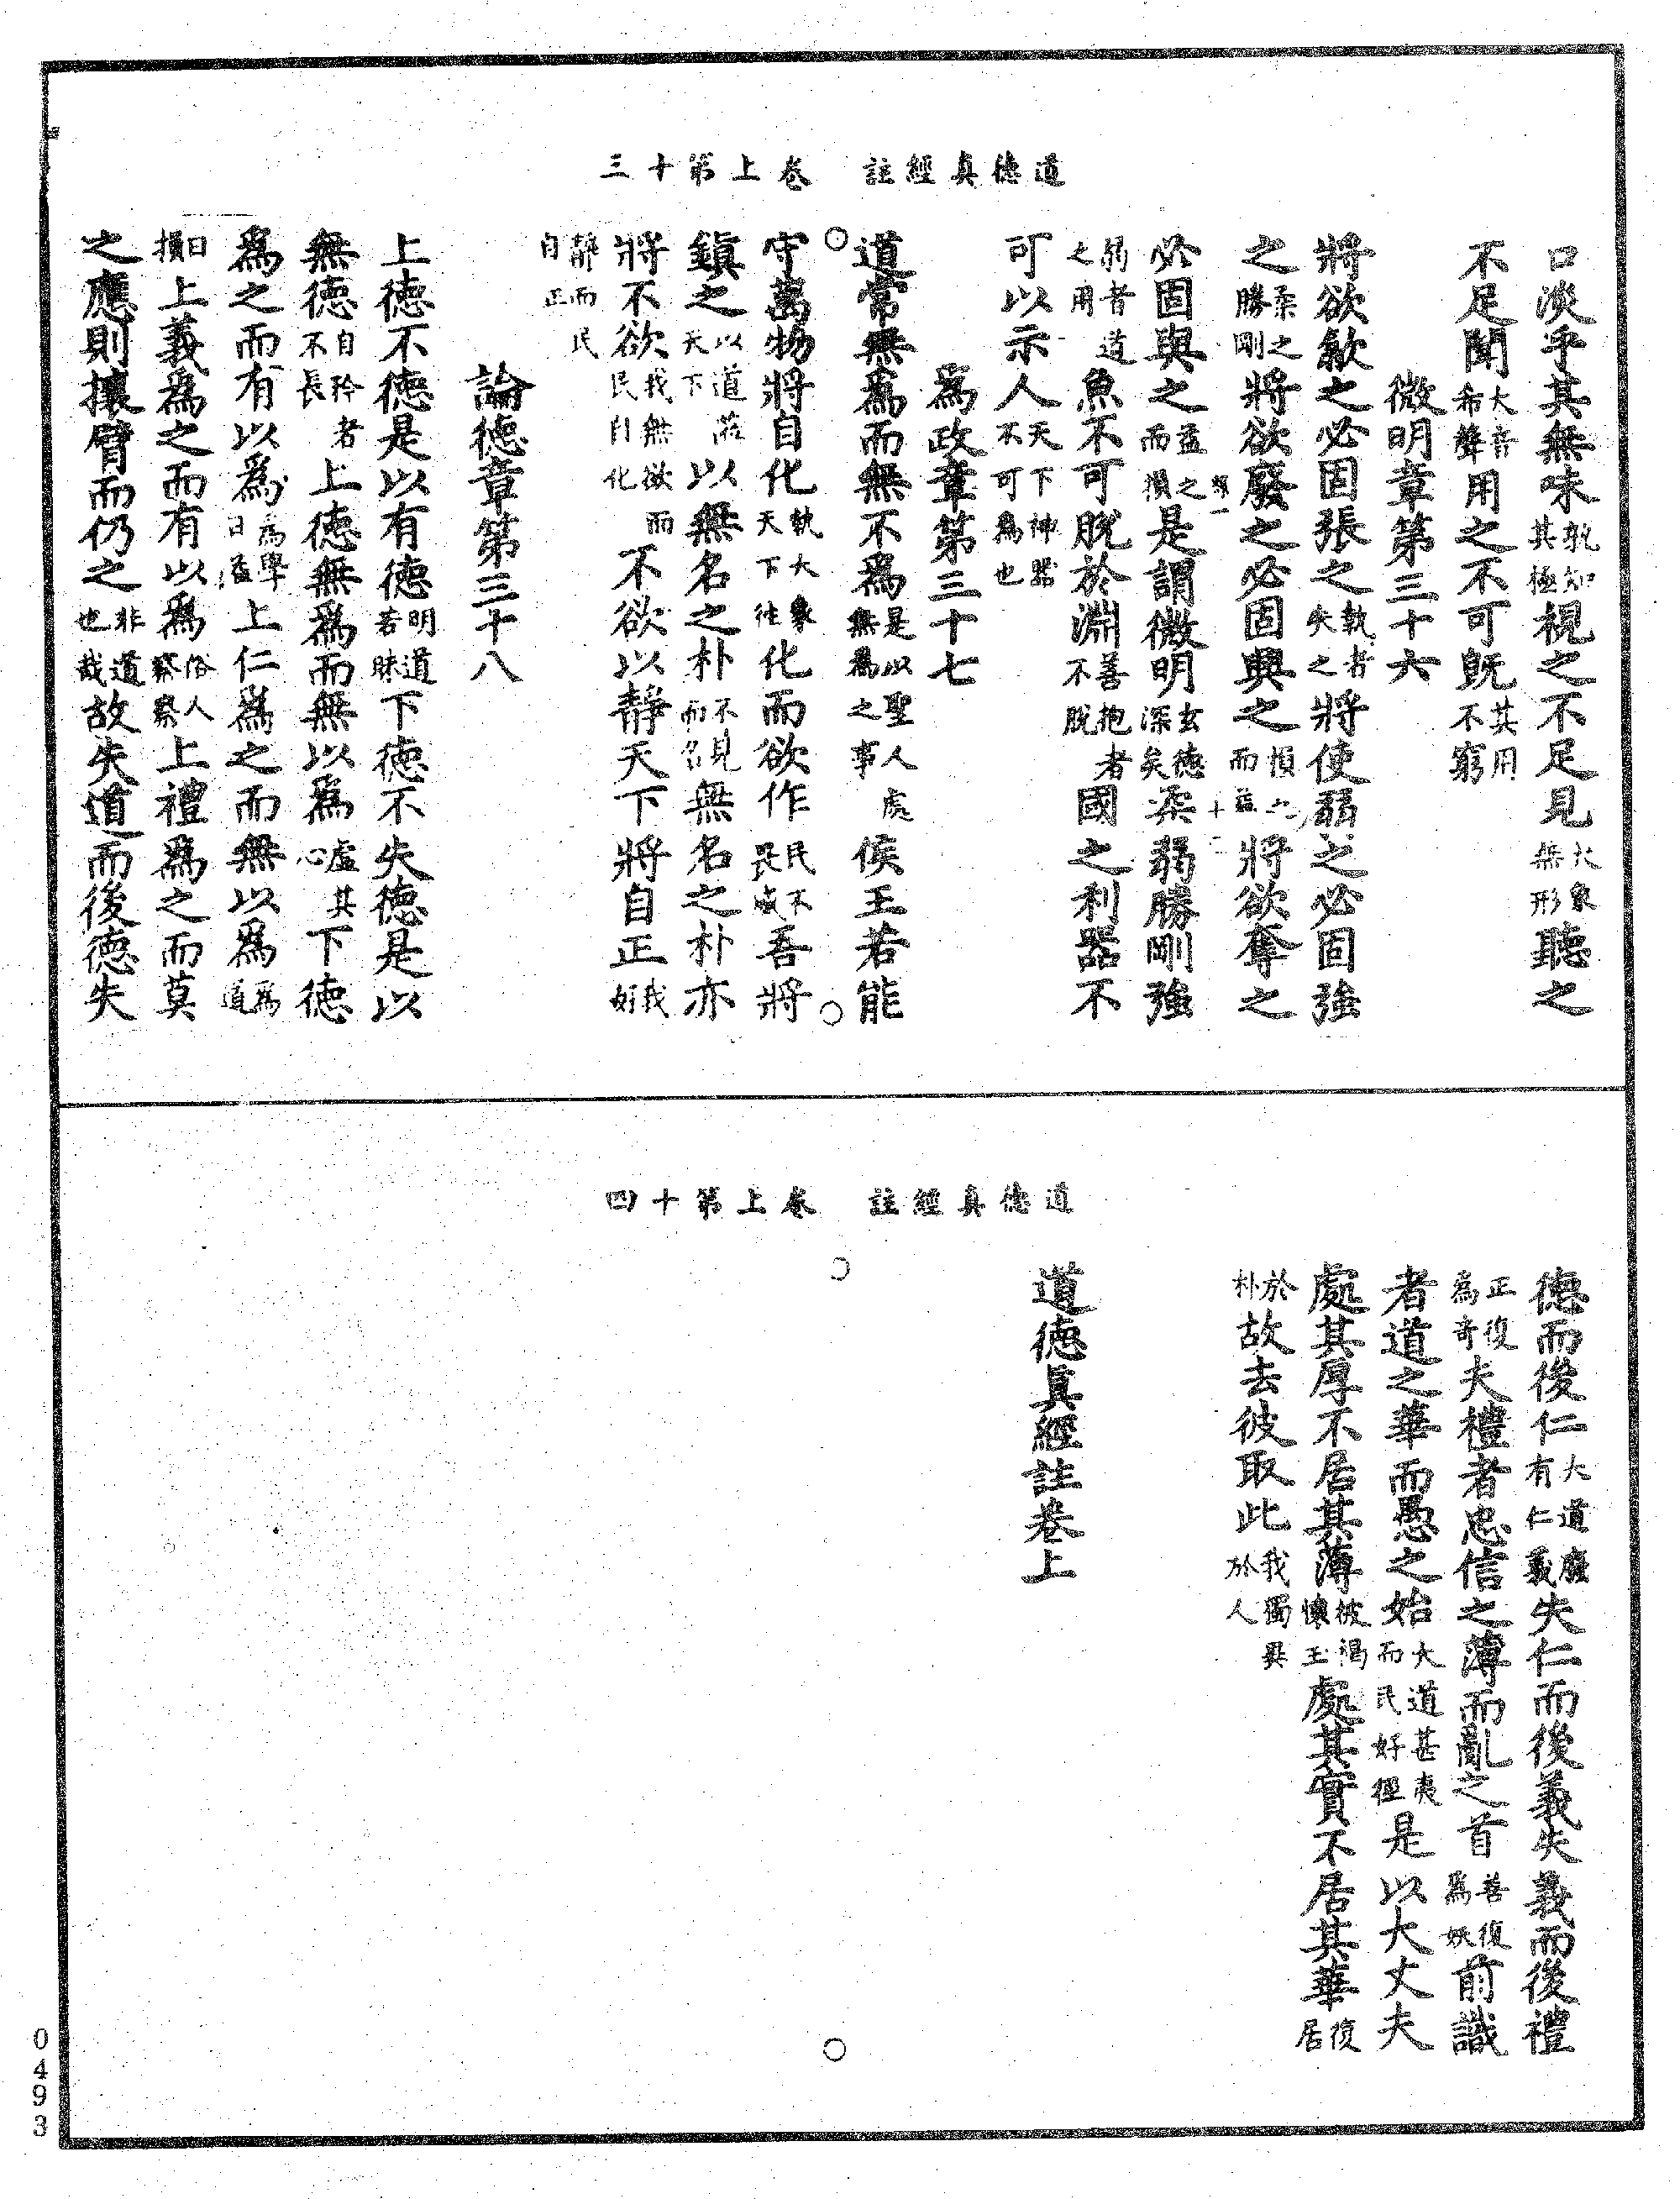 道德真經註　卷上第十三
口淡乎其無味孰知其極視之不足見大象無形聽之
不足聞大音希聲用之不可既其用不窮
微明章第三十六
將欲歙之必固張之執者失之將使弱之必固強
之柔之勝剛將欲廢之必固興之損之而益將欲奪之
必固與之益之而損是謂微明玄德深矣柔弱勝剛強
弱者道之用魚不可脫於淵善抱者不脫國之利器不
可以示人天下神器不可為也
為政章第三十七
道常無為而無不為是以聖人處無為之事侯王若能
守萬物將自化執大象天下往化而欲作民不畏威吾將
鎮之以道蒞天下以無名之朴不見而名無名之朴亦
將不欲我無欲而民自化不欲以靜天下將自正我好
靜而民自正
論德章第三十八
上德不德是以有德明道若昧下德不失德是以
無德自矜者不長上德無為而無以為虛其心下德
為之而有以為為學日益上仁為之而無以為為道
日損上義為之而有以為俗人察察上禮為之而莫
之應則攘臂而仍之非道也哉故失道而後德失
道德真經註　卷上第十四
德而後仁大道廢有仁義失仁而後義失義而後禮
正復為奇夫禮者忠信之薄而亂之首善復為妖前識
者道之華而愚之始大道甚夷而民好徑是以大丈夫
處其厚不居其薄被褐懷玉處其實不居其華復居
於朴故去彼取此我獨異於人
道德真經註卷上
0493